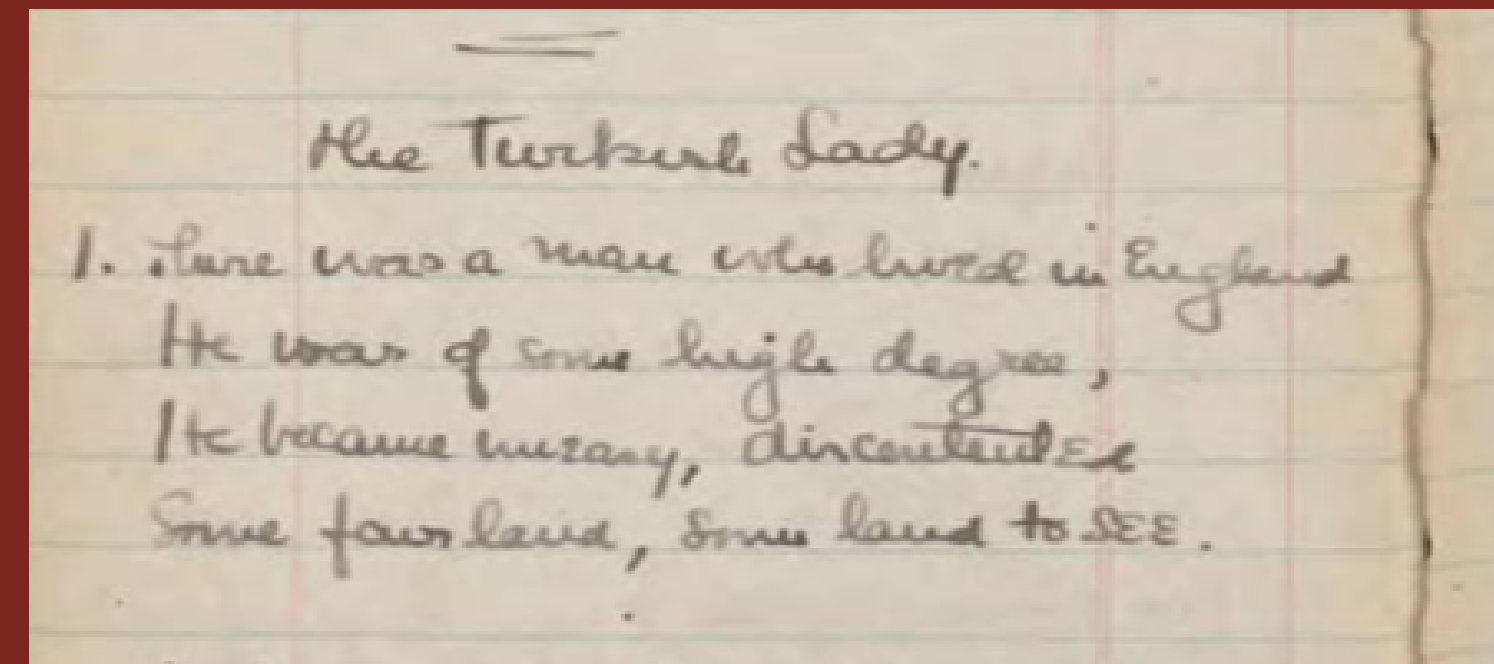 The Turkish Lady.
1. There was a man who lived in England
He was of some high degree,
He became uneasy, discontented
Some fair land, some land to SEE.